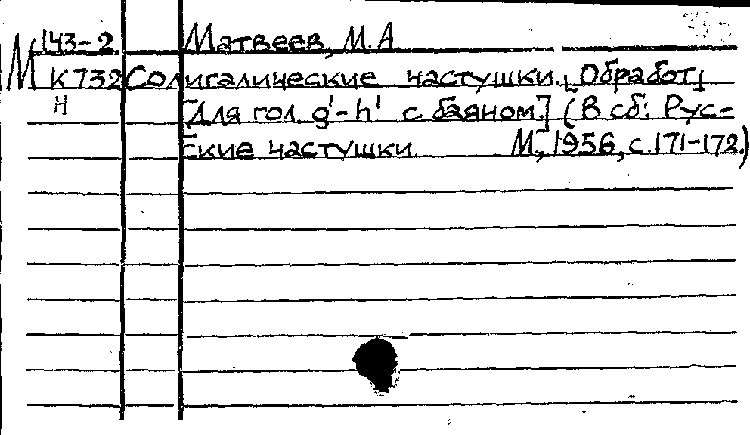 М 143-2 Матвеев, М. А
К 732 Солигалические частушки. [Обработ]
Н [Для гол. g'-h' с баяном.] (В сб: Рус-
ские частушки. М., 1956, с. 171-172.)